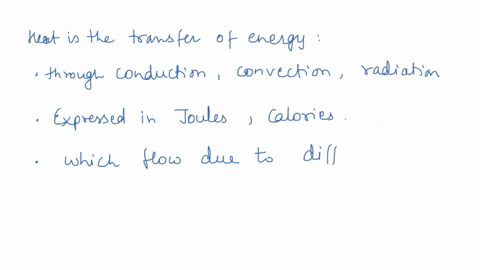 Heat is the transfer of energy :
· through conduction, convection, radiation
· Expressed in Joules, Calories.
· which flow due to diff